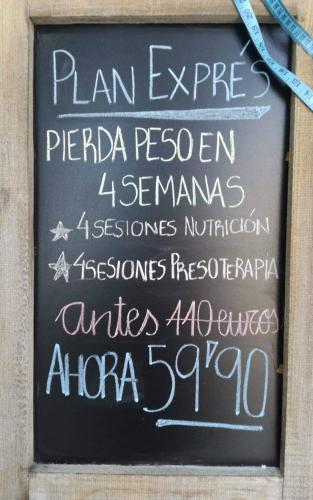 PLAN EXPRÉS
PIERDA PESO EN
4 SEMANAS
4 SESIONES NUTRICIÓN
4 SESIONES PRESOTERAPIA
antes 110 euros
AHORA 59'90